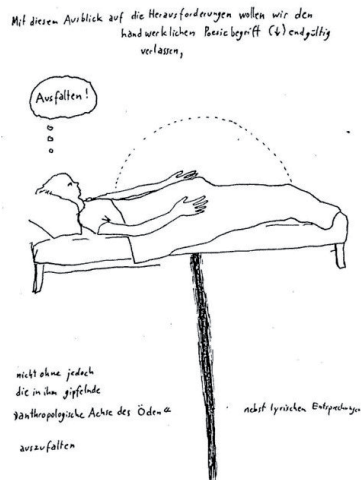 Mit diesem Ausblick auf die Herausforderungen wollen wir den
handwerklichen Poesiebegriff (↓) endgültig
verlassen,
Ausfalten!
nicht ohne jedoch
die in ihm gipfelnde
»anthropologische Achse des Öden«
auszufalten
nebst lyrischen Entsprechungen